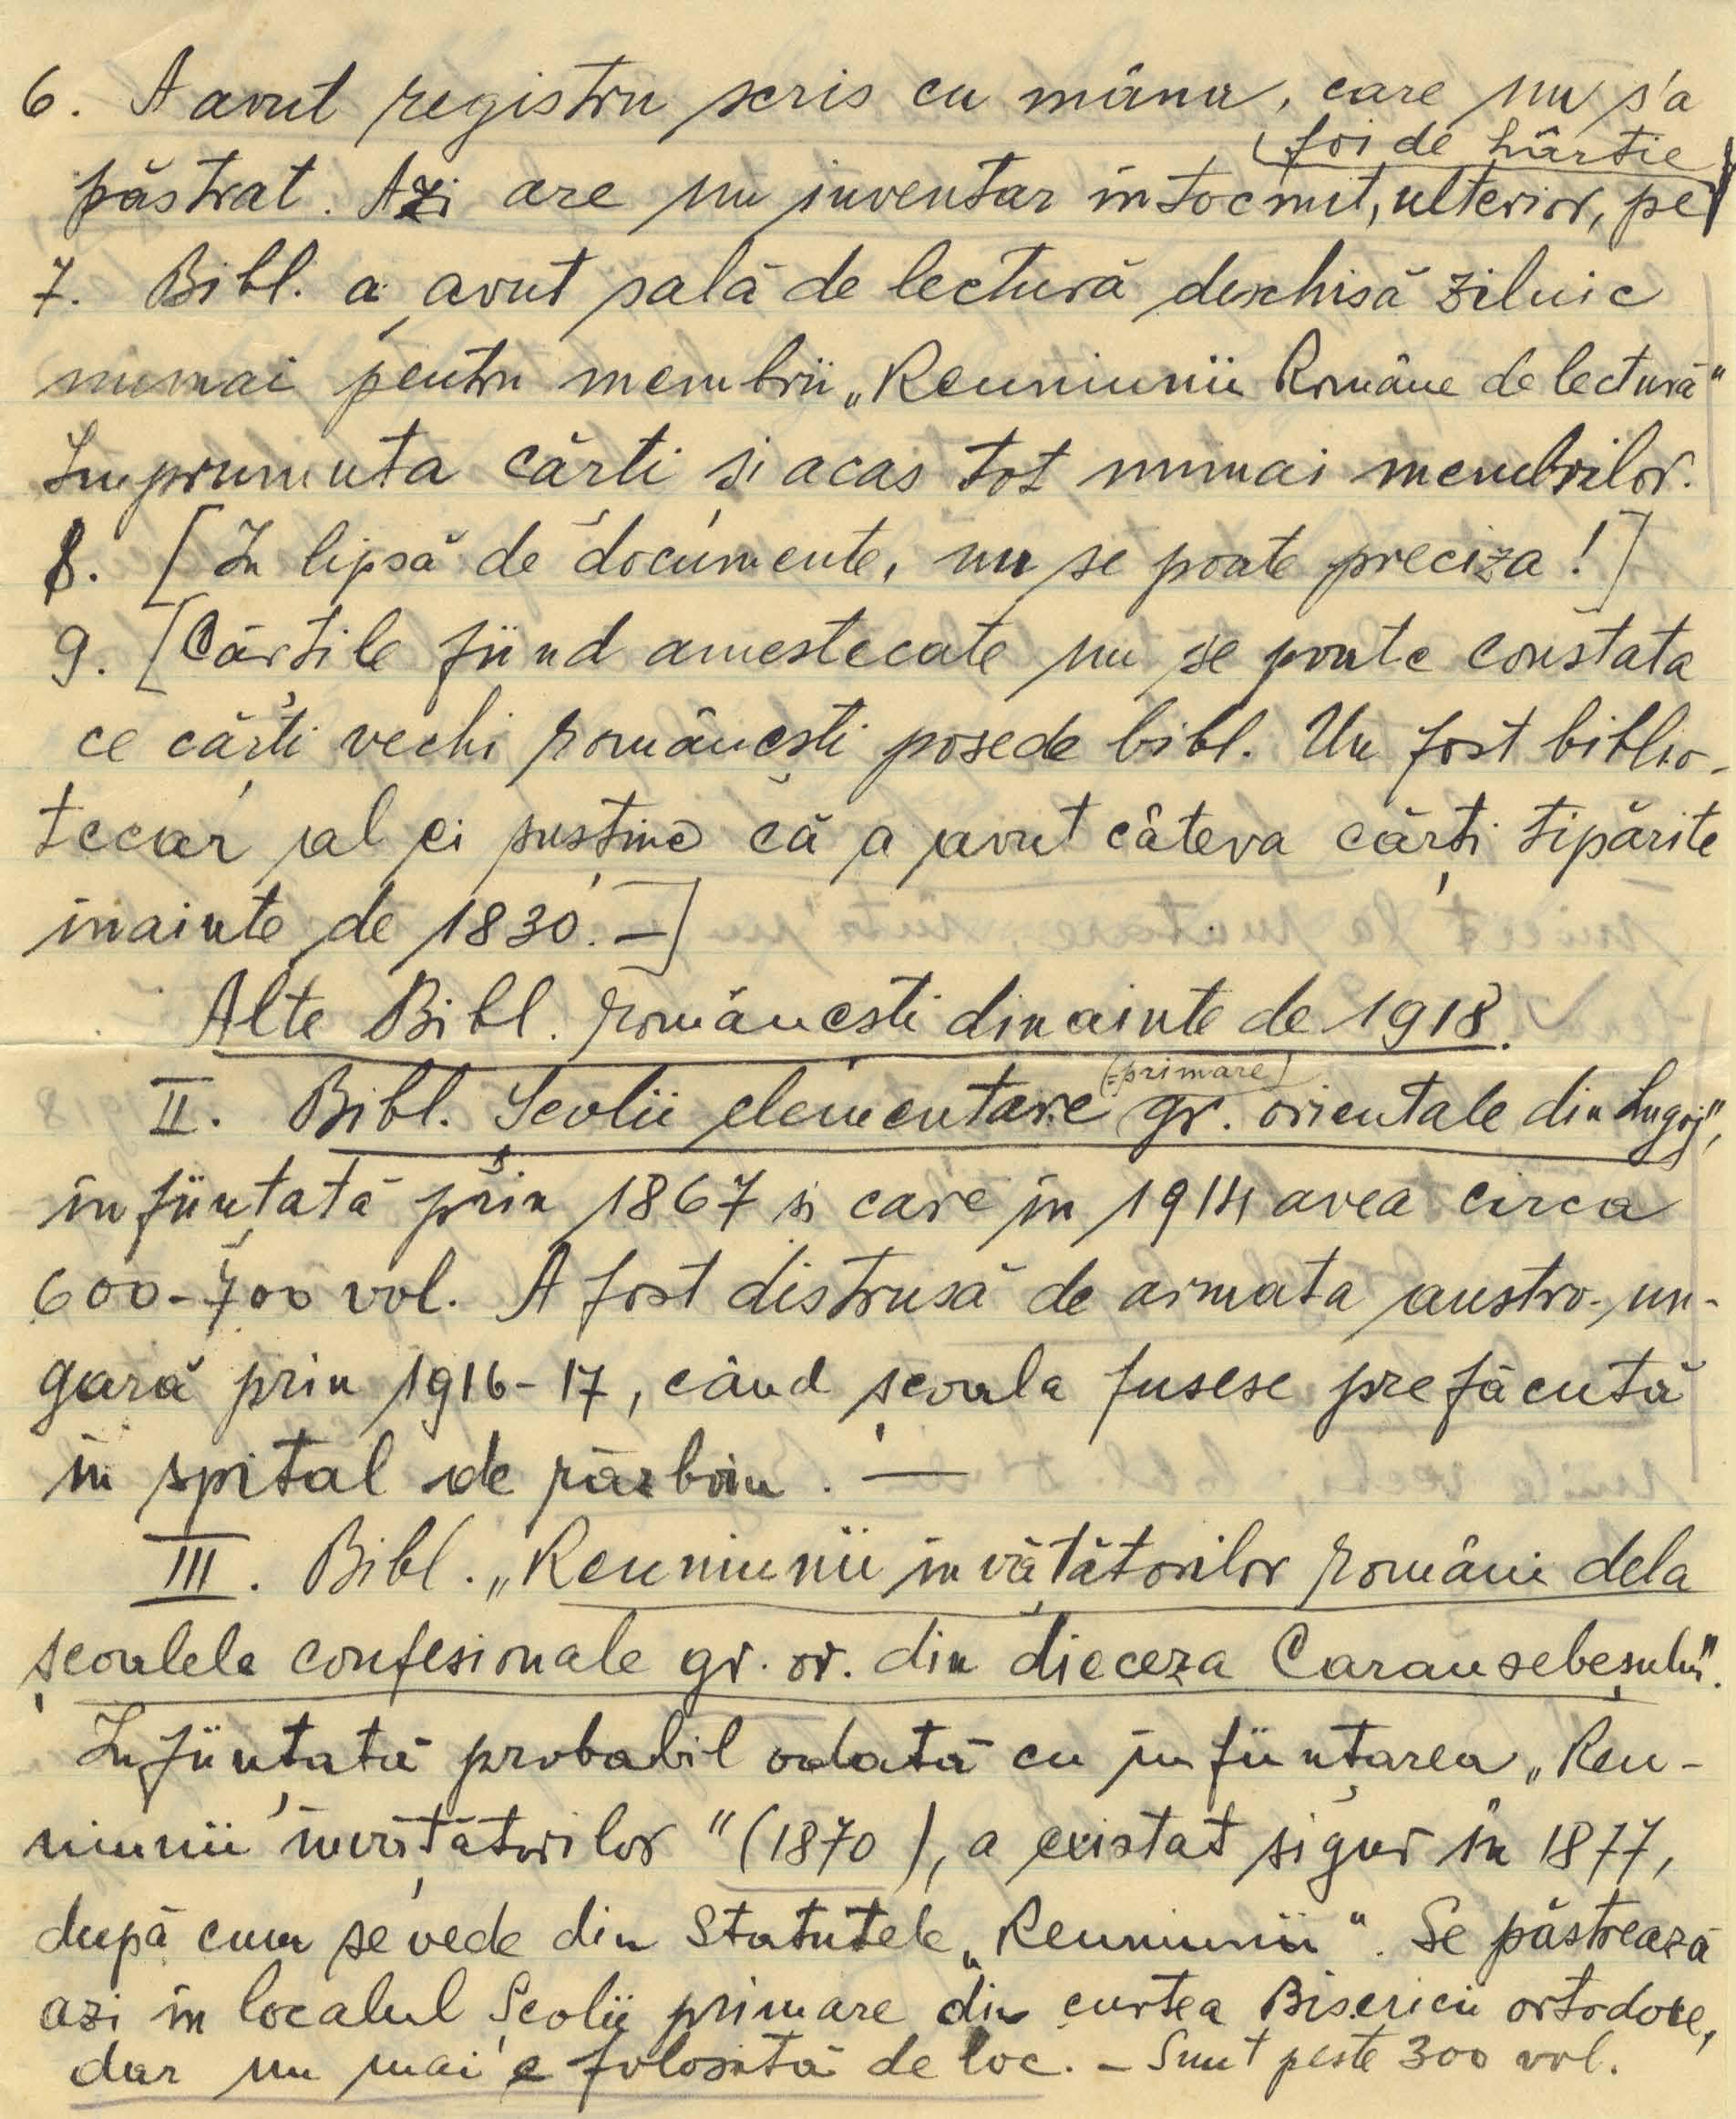 6. A avut registru scris cu mâna, care nu s'a
(foi de hârtie
păstrat. Azi are un inventar întocmit, ulterior, pe
7. Bibl. a avut sală de lectură deschisă zilnic
numai pentru membrii „Reuniunii Române de lectură“
Împrumuta cărți și acas tot numai membrilor.
8. [În lipsă de documente, nu se poate preciza!]
9. [Cărțile fiind amestecate nu se poate constata
ce cărți vechi românești posede bibl. Un fost biblio-
tecar al ei susține că a avut câteva cărți tipărite
înainte de 1830. —]
Alte Bibl. românești dinainte de 1918.
(=primare)
II. Bibl. Școlii elementare gr. orientale din Lugoj“,
înființată prin 1867 și care în 1914 avea circa
600-700 vol. A fost distrusă de armata austro-un-
gară prin 1916-17, când școala fusese prefăcută
în spital de război. —
III. Bibl. „Reuniunii învățătorilor români dela
școalele confesionale gr. or. din dieceza Caransebeșului“.
Înființată probabil odată cu înființarea „Reu-
niunii învățătorilor“ (1870), a existat sigur în 1877,
după cum se vede din Statutele „Reuniunii“. Se păstrează
azi în localul Școlii primare din curtea Bisericii ortodoxe,
dar nu mai e folosită de loc. — Sunt peste 300 vol.